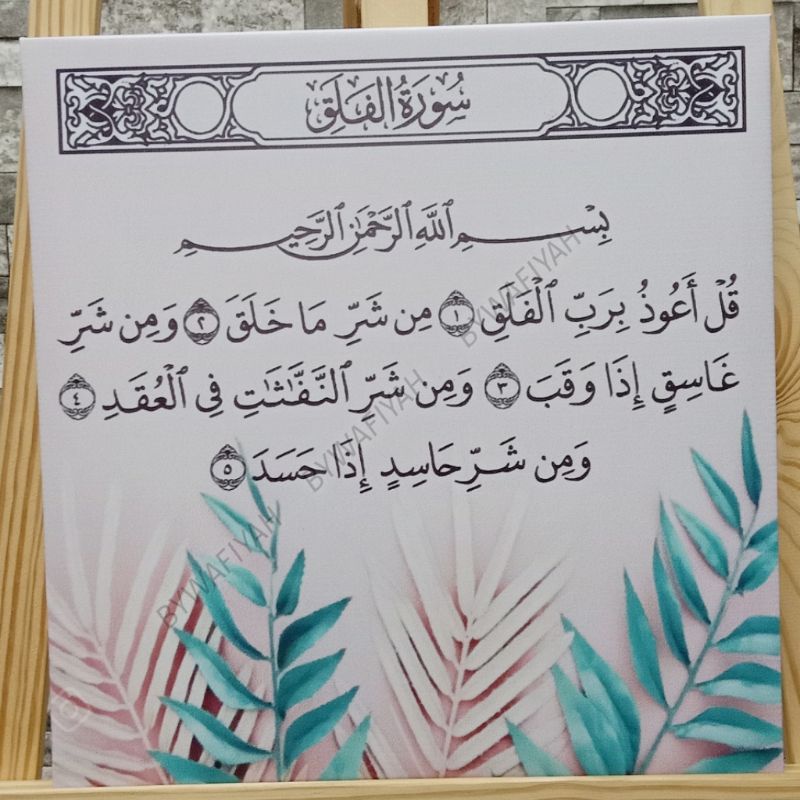 سُورَةُ الفَلَقِ
بِسْمِ ٱللَّهِ ٱلرَّحْمَٰنِ ٱلرَّحِيمِ
قُلْ أَعُوذُ بِرَبِّ ٱلْفَلَقِ ١ مِن شَرِّ مَا خَلَقَ ٢ وَمِن شَرِّ
غَاسِقٍ إِذَا وَقَبَ ٣ وَمِن شَرِّ ٱلنَّفَّٰثَٰتِ فِى ٱلْعُقَدِ ٤
وَمِن شَرِّ حَاسِدٍ إِذَا حَسَدَ ٥
BYWAFIYAH
BYWAFIYAH
BYWAFIYAH